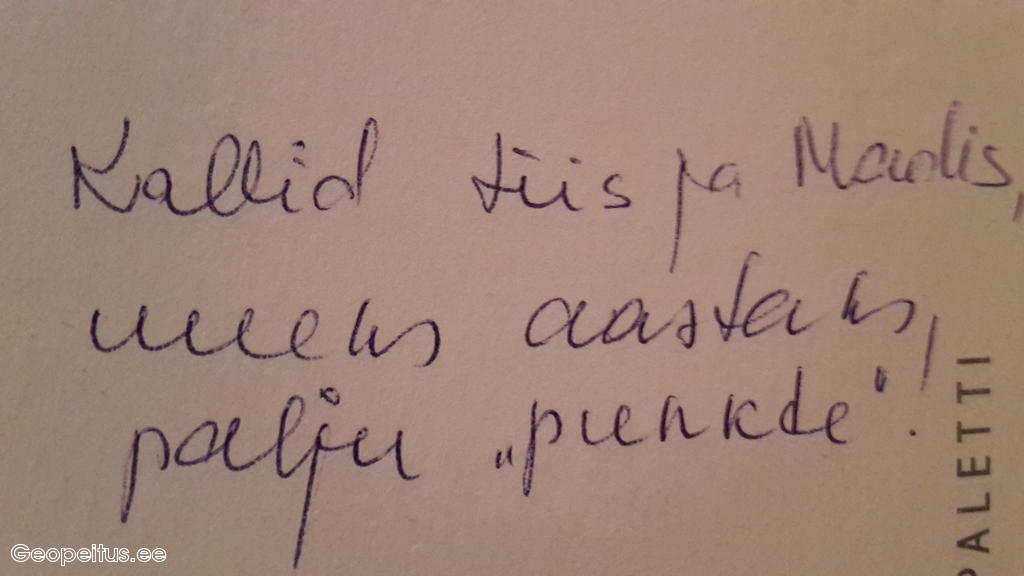 Kallid tiis ja Madis,
uueks aastaks,
palju „punkte“!
PALETTI
Geopeitus.ee